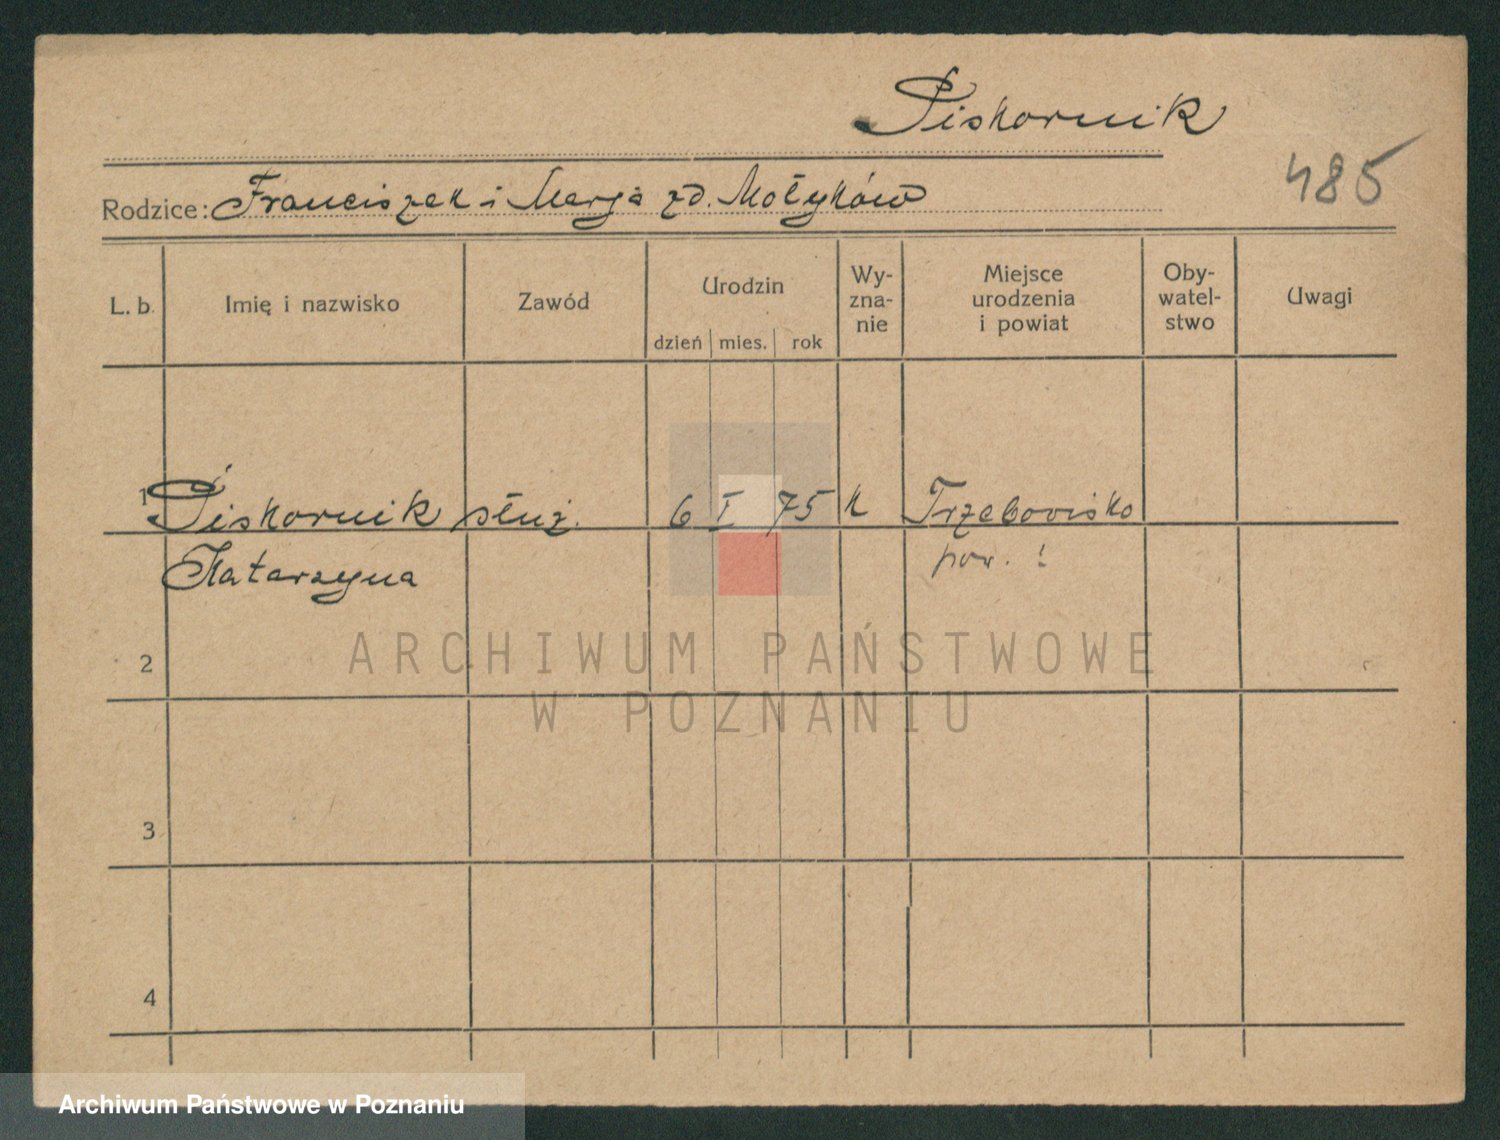 Piskornik
485
Rodzice: Franciszek i Marja zd. Motyków
L. b. Imię i nazwisko Zawód Urodzin Wy-zna-nie Miejsce urodzenia i powiat Oby-watel-stwo Uwagi
dzień mies. rok
1 Piskornik służ. 6 I 75 k Trzebowisko
Katarzyna pow. !
2
3
4
ARCHIWUM PAŃSTWOWE
W POZNANIU
Archiwum Państwowe w Poznaniu